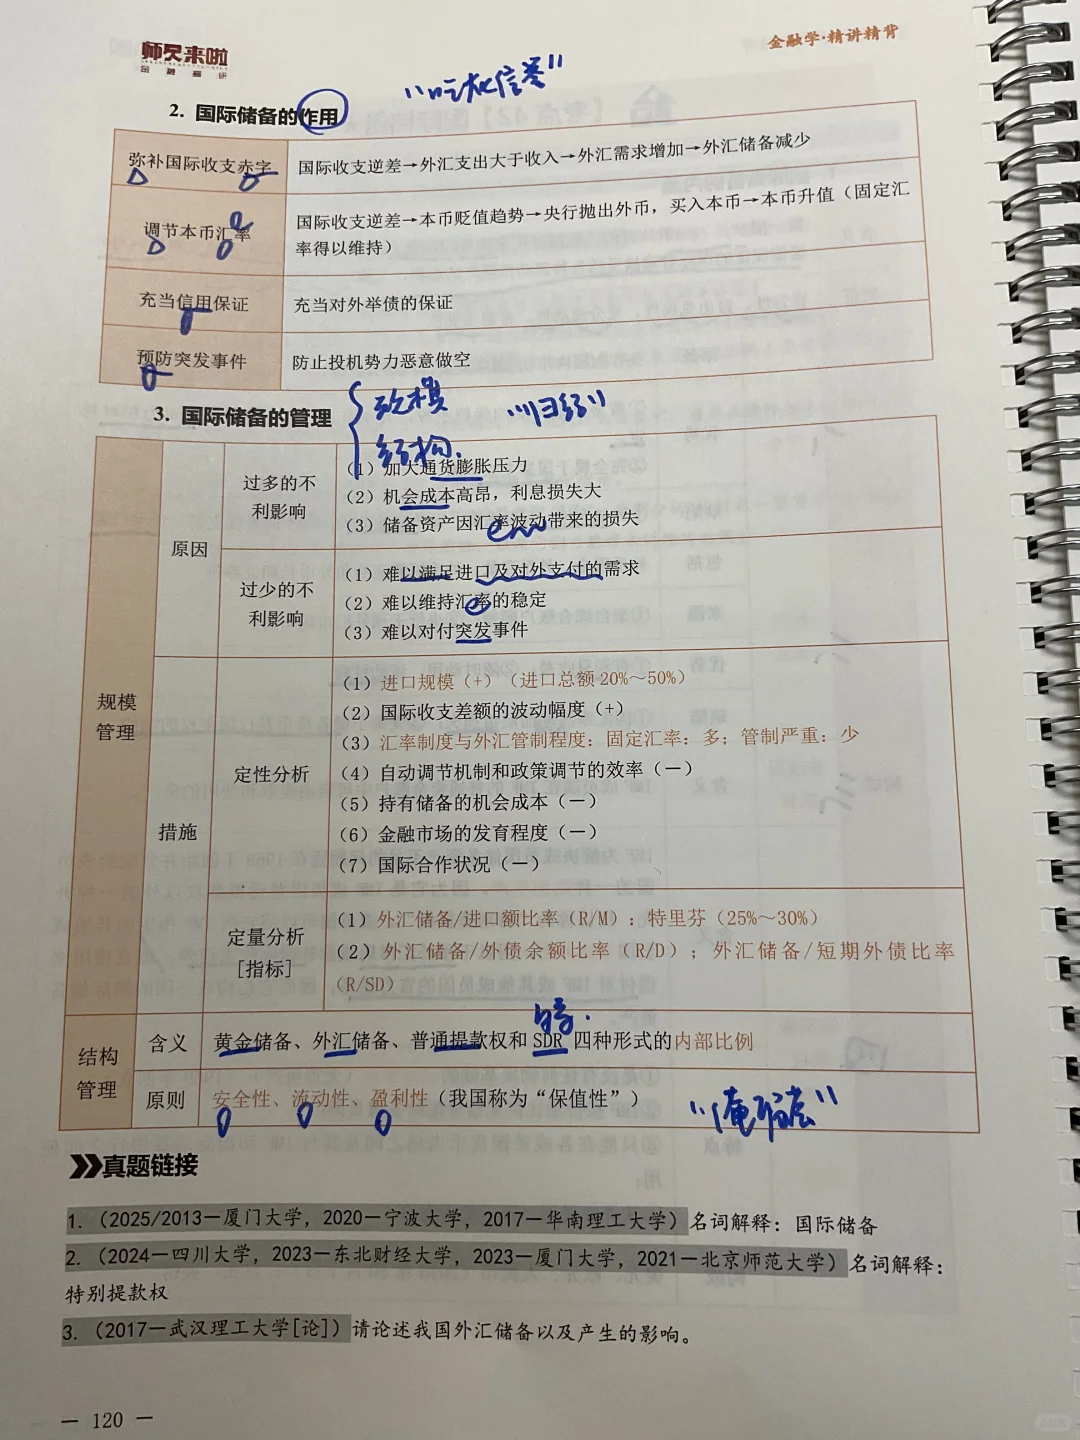 师兄来啦
金融考研
金融学·精讲精背
2. 国际储备的作用
弥补国际收支赤字 国际收支逆差→外汇支出大于收入→外汇需求增加→外汇储备减少
调节本币汇率 国际收支逆差→本币贬值趋势→央行抛出外币，买入本币→本币升值（固定汇
率得以维持）
充当信用保证 充当对外举债的保证
预防突发事件 防止投机势力恶意做空
3. 国际储备的管理
规模
管理
原因
过多的不
利影响
（1）加大通货膨胀压力
（2）机会成本高昂，利息损失大
（3）储备资产因汇率波动带来的损失
过少的不
利影响
（1）难以满足进口及对外支付的需求
（2）难以维持汇率的稳定
（3）难以对付突发事件
措施
定性分析
（1）进口规模（+）（进口总额 20%～50%）
（2）国际收支差额的波动幅度（+）
（3）汇率制度与外汇管制程度：固定汇率：多；管制严重：少
（4）自动调节机制和政策调节的效率（—）
（5）持有储备的机会成本（—）
（6）金融市场的发育程度（—）
（7）国际合作状况（—）
定量分析
[指标]
（1）外汇储备/进口额比率（R/M）：特里芬（25%～30%）
（2）外汇储备/外债余额比率（R/D）；外汇储备/短期外债比率
（R/SD）
结构
管理
含义 黄金储备、外汇储备、普通提款权和 SDR 四种形式的内部比例
原则 安全性、流动性、盈利性（我国称为“保值性”）
真题链接
1. （2025/2013—厦门大学，2020—宁波大学，2017—华南理工大学）名词解释：国际储备
2. （2024—四川大学，2023—东北财经大学，2023—厦门大学，2021—北京师范大学）名词解释：
特别提款权
3. （2017—武汉理工大学[论]）请论述我国外汇储备以及产生的影响。
— 120 —